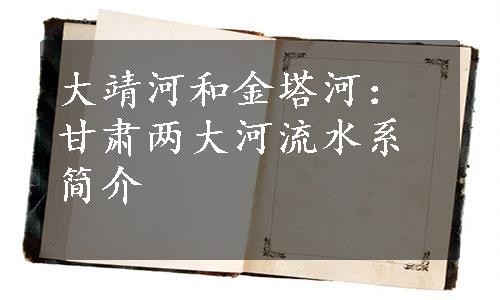 大靖河和金塔河：
甘肃两大河流水系
简介